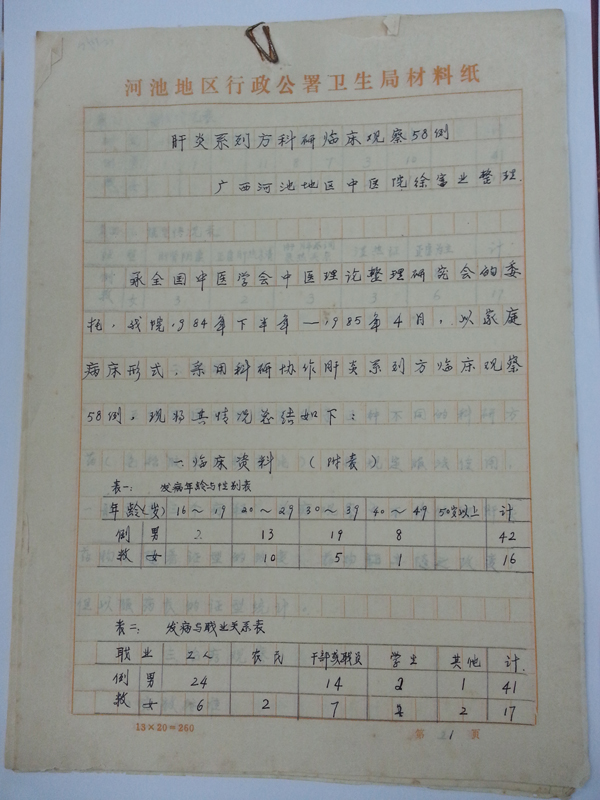 河池地区行政公署卫生局材料纸
肝炎系列方科研临床观察58例
广西河池地区中医院徐富业整理.
承全国中医学会中医理论整理研究会的委
托，我院1984年下半年—1985年4月，以家庭
病床形式，采用科研协作肝炎系列方临床观察
58例，现将其情况总结如下：
一、临床资料 （附表）
表一： 发病年龄与性别表
年龄(岁) 16～19 20～29 30～39 40～49 50岁以上 计
例 男 2 13 19 8 42
数 女 10 5 1 16
表二： 发病与职业关系表
职业 工人 农民 干部或职员 学生 其他 计
例 男 24 14 2 1 41
数 女 6 2 7 2 17
13×20=260
第 1 页